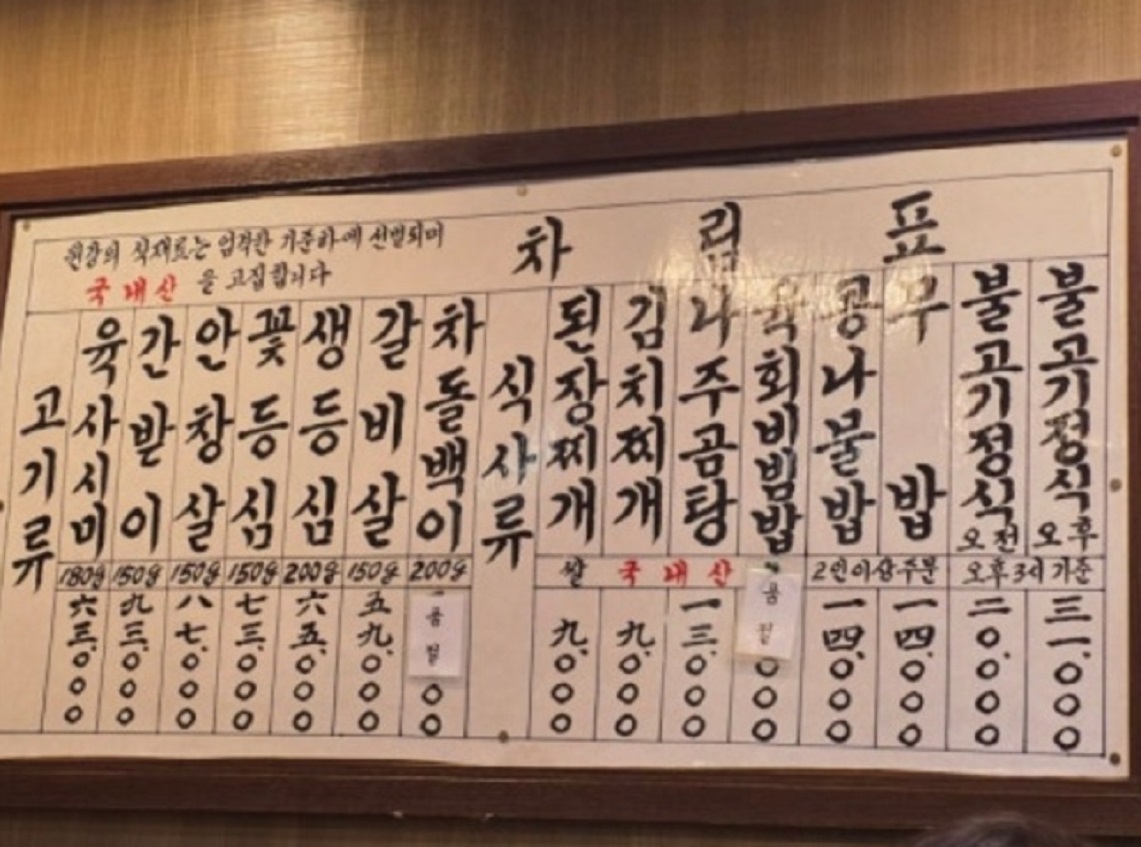 원강의 식재료는 엄격한 기준하에 선별되며
국내산 을 고집합니다
차림표
고기류
육사시미 180g 六三,○○○
간받이 150g 九三,○○○
안창살 150g 八七,○○○
꽃등심 150g 七三,○○○
생등심 200g 六五,○○○
갈비살 150g 五九,○○○
차돌백이 200g 품절 ○○
식사류
쌀 국내산
된장찌개 九,○○○
김치찌개 九,○○○
나주곰탕 一三,○○○
육회비빔밥 품절 ○○○
2인이상주문
콩나물밥 一四,○○○
무밥 一四,○○○
오후3시 기준
불고기정식 오전 二○,○○○
불고기정식 오후 三一,○○○